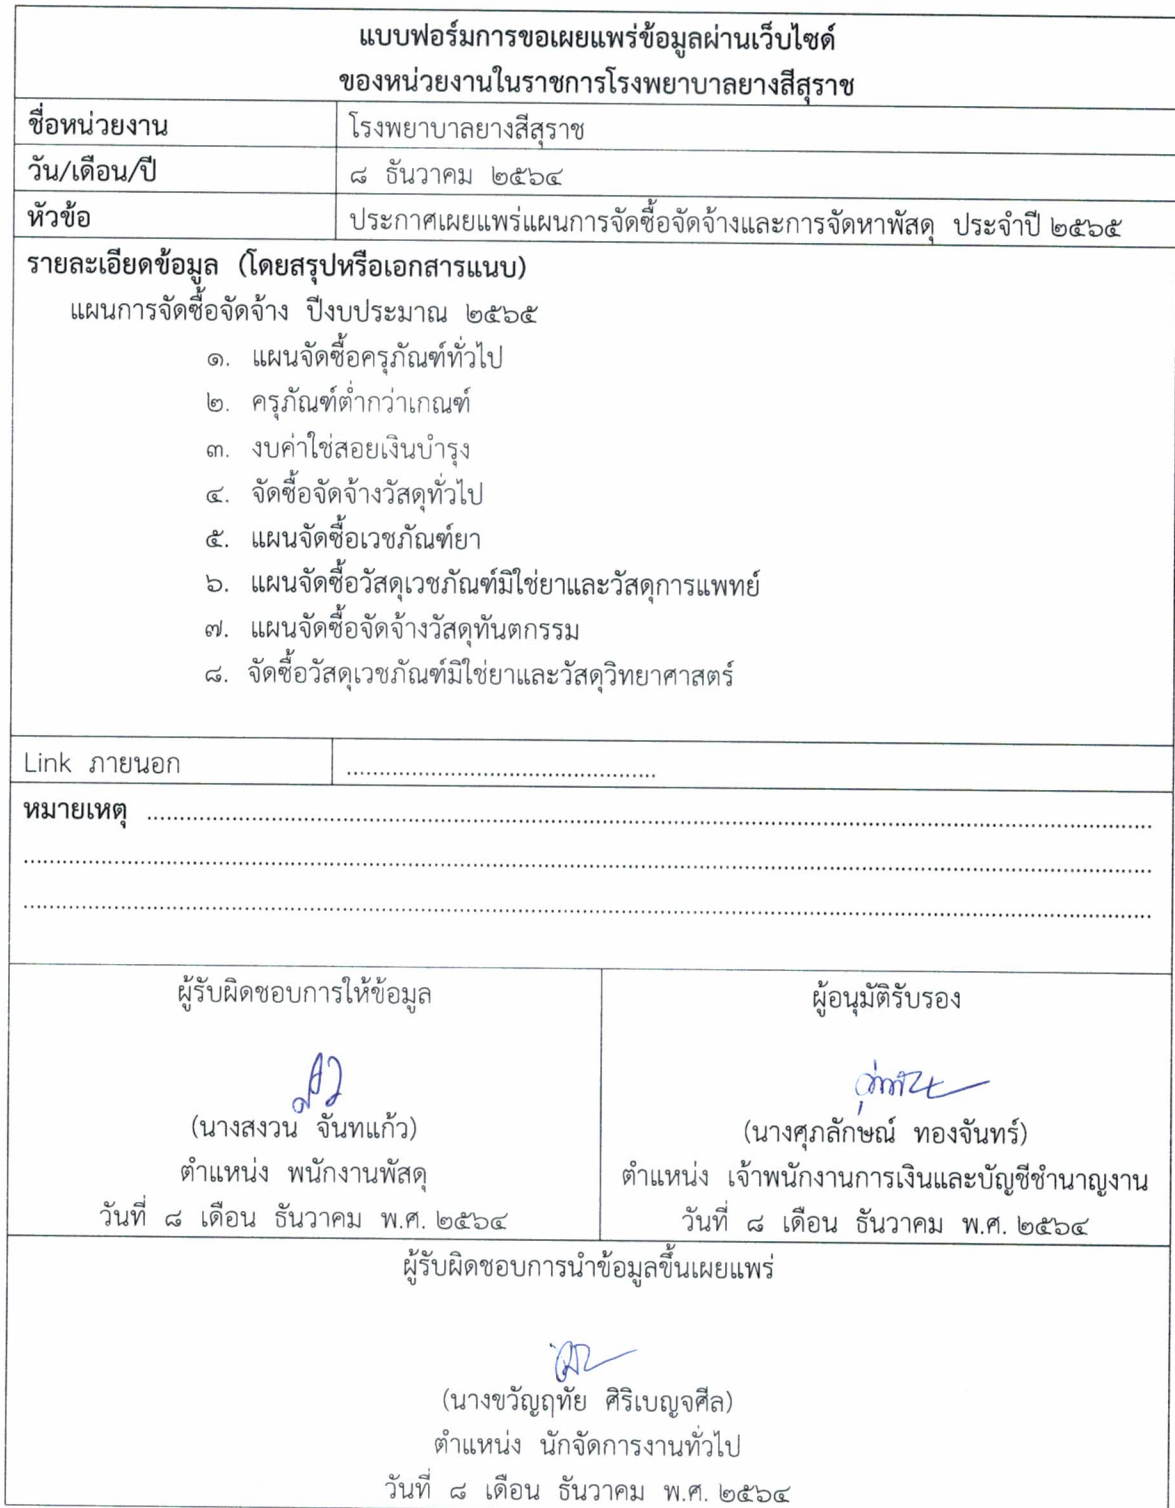 แบบฟอร์มการขอเผยแพร่ข้อมูลผ่านเว็บไซต์
ของหน่วยงานในราชการโรงพยาบาลยางสีสุราช
ชื่อหน่วยงาน โรงพยาบาลยางสีสุราช
วัน/เดือน/ปี ๘ ธันวาคม ๒๕๖๔
หัวข้อ ประกาศเผยแพร่แผนการจัดซื้อจัดจ้างและการจัดหาพัสดุ ประจำปี ๒๕๖๕
รายละเอียดข้อมูล (โดยสรุปหรือเอกสารแนบ)
แผนการจัดซื้อจัดจ้าง ปีงบประมาณ ๒๕๖๕
๑. แผนจัดซื้อครุภัณฑ์ทั่วไป
๒. ครุภัณฑ์ต่ำกว่าเกณฑ์
๓. งบค่าใช่สอยเงินบำรุง
๔. จัดซื้อจัดจ้างวัสดุทั่วไป
๕. แผนจัดซื้อเวชภัณฑ์ยา
๖. แผนจัดซื้อวัสดุเวชภัณฑ์มิใช่ยาและวัสดุการแพทย์
๗. แผนจัดซื้อจัดจ้างวัสดุทันตกรรม
๘. จัดซื้อวัสดุเวชภัณฑ์มิใช่ยาและวัสดุวิทยาศาสตร์
Link ภายนอก ...............................................
หมายเหตุ ...............................................
...............................................
...............................................
ผู้รับผิดชอบการให้ข้อมูล
(นางสงวน จันทแก้ว)
ตำแหน่ง พนักงานพัสดุ
วันที่ ๘ เดือน ธันวาคม พ.ศ. ๒๕๖๔
ผู้อนุมัติรับรอง
(นางศุภลักษณ์ ทองจันทร์)
ตำแหน่ง เจ้าพนักงานการเงินและบัญชีชำนาญงาน
วันที่ ๘ เดือน ธันวาคม พ.ศ. ๒๕๖๔
ผู้รับผิดชอบการนำข้อมูลขึ้นเผยแพร่
(นางขวัญฤทัย ศิริเบญจศีล)
ตำแหน่ง นักจัดการงานทั่วไป
วันที่ ๘ เดือน ธันวาคม พ.ศ. ๒๕๖๔